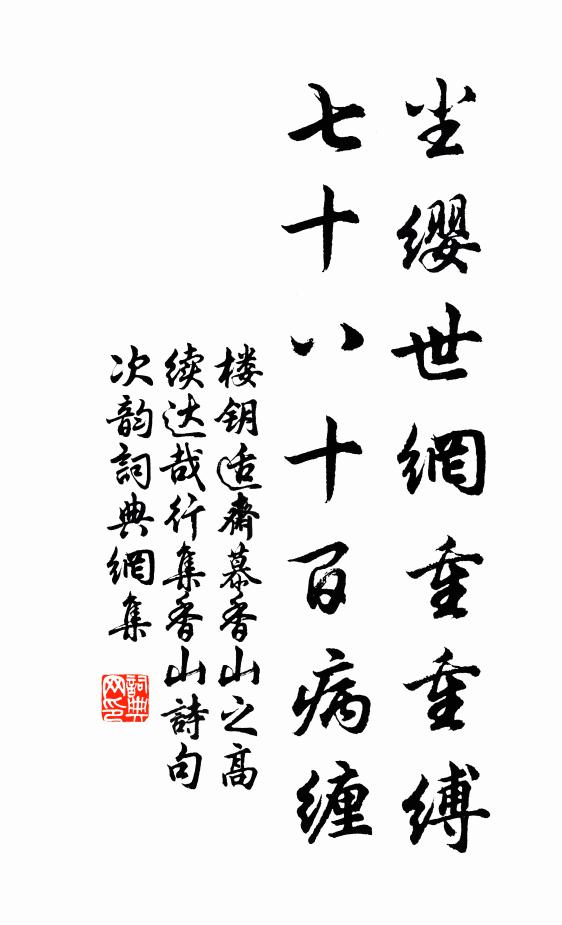 尘缨世網重重縛
七十八十百病缠
楼钥适齋慕香山之高
续达哉行集香山詩句
次韵詞典網集
詞典
网印